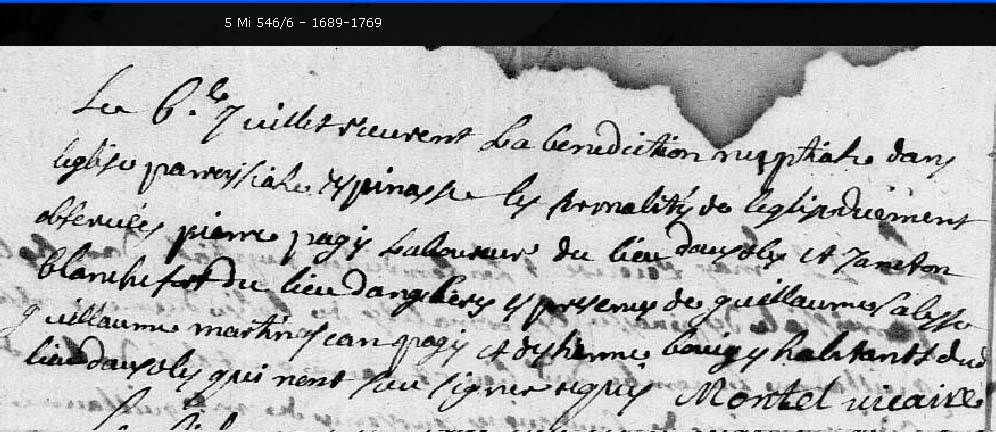 5 Mi 546/6 - 1689-1769
Le 6.e Juillet receurent La benediction nuptiale dans
leglise parroissiale despinasse les formalités de leglise duement
observées pierre pagis Laboureur du lieu et Janeton
blanchefort du lieu danglieres es presence de guillaume
guillaume martin Jean pagis et destienne bougy habitants dud
lieu qui nont sceu signer requis Montel vicaire